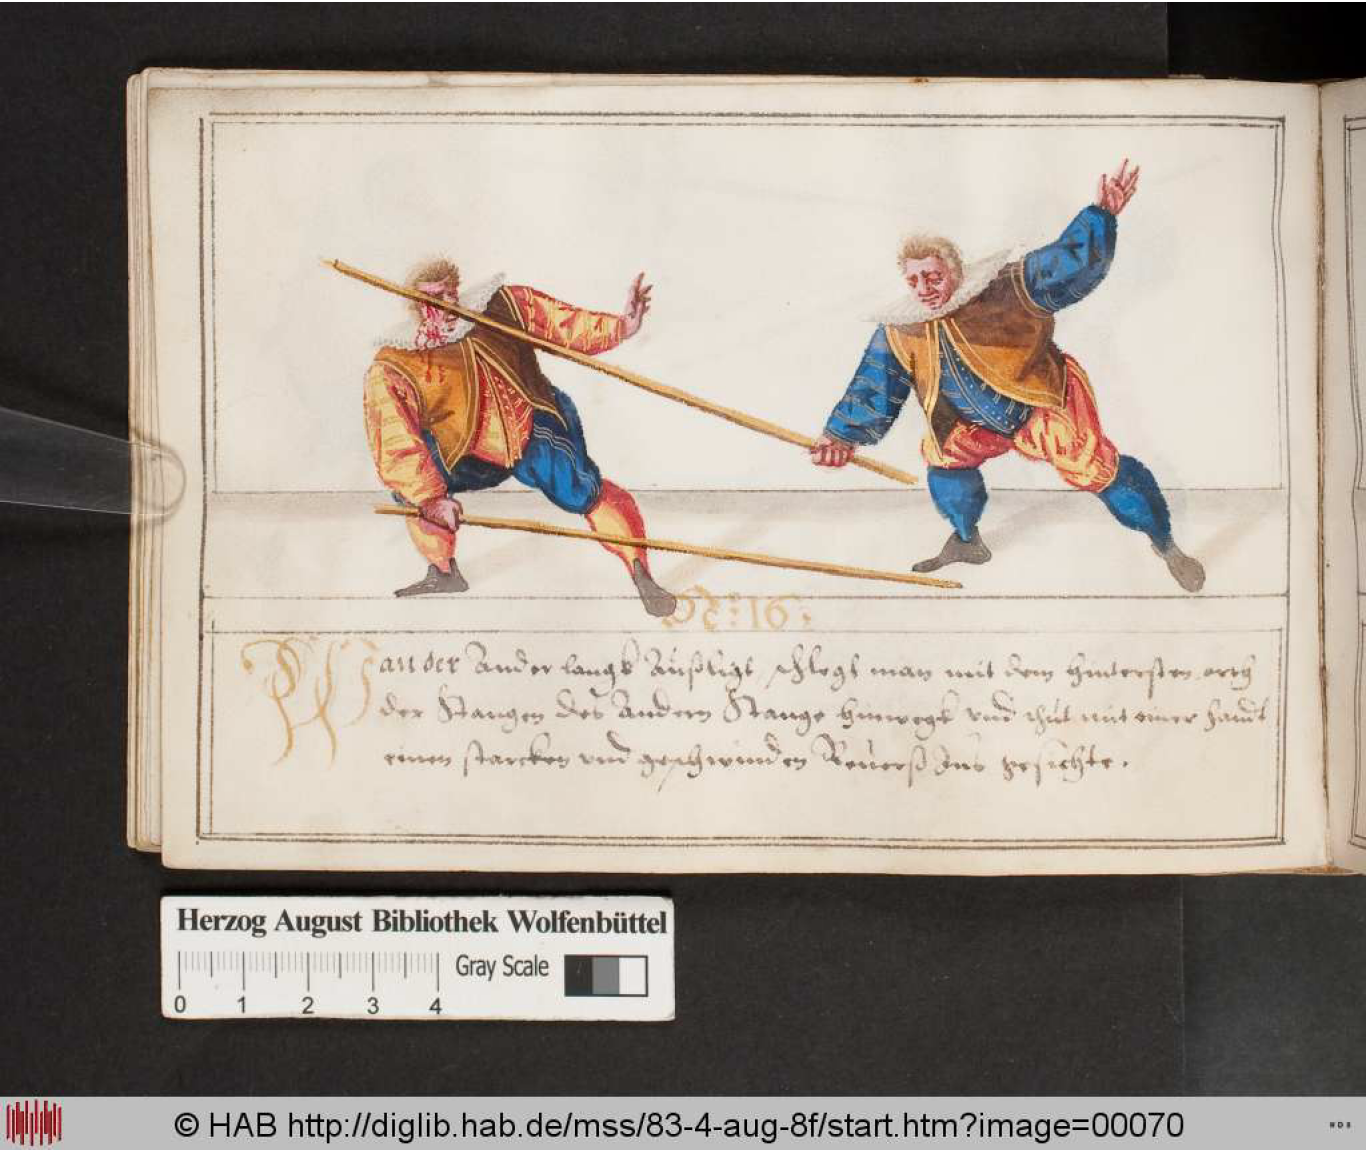 : 16 :
Wan der Ander langk Außligt, schlegt man mit dem hintersten orth
der Stangen des Andern Stange hinwegk vnd thut mit einer handt
einen starcken vnd geschwinden Reuerß Ins gesichte.
Herzog August Bibliothek Wolfenbüttel
Gray Scale
0 1 2 3 4
© HAB http://diglib.hab.de/mss/83-4-aug-8f/start.htm?image=00070